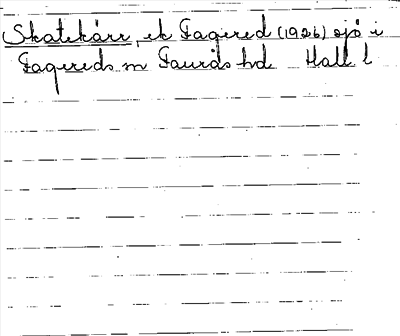 Skatekärr, ek Fagered (1926) sjö i
Fagereds sn Faurås hd Hall l